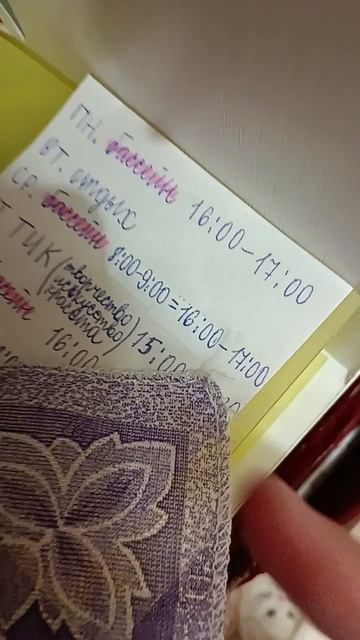 ПН. бассейн 16:00-17:00
ВТ. отдых
СР. бассейн 8:00-9:00=16:00-17:00
ТИК (творчество искусство красота) 15:00
16:00